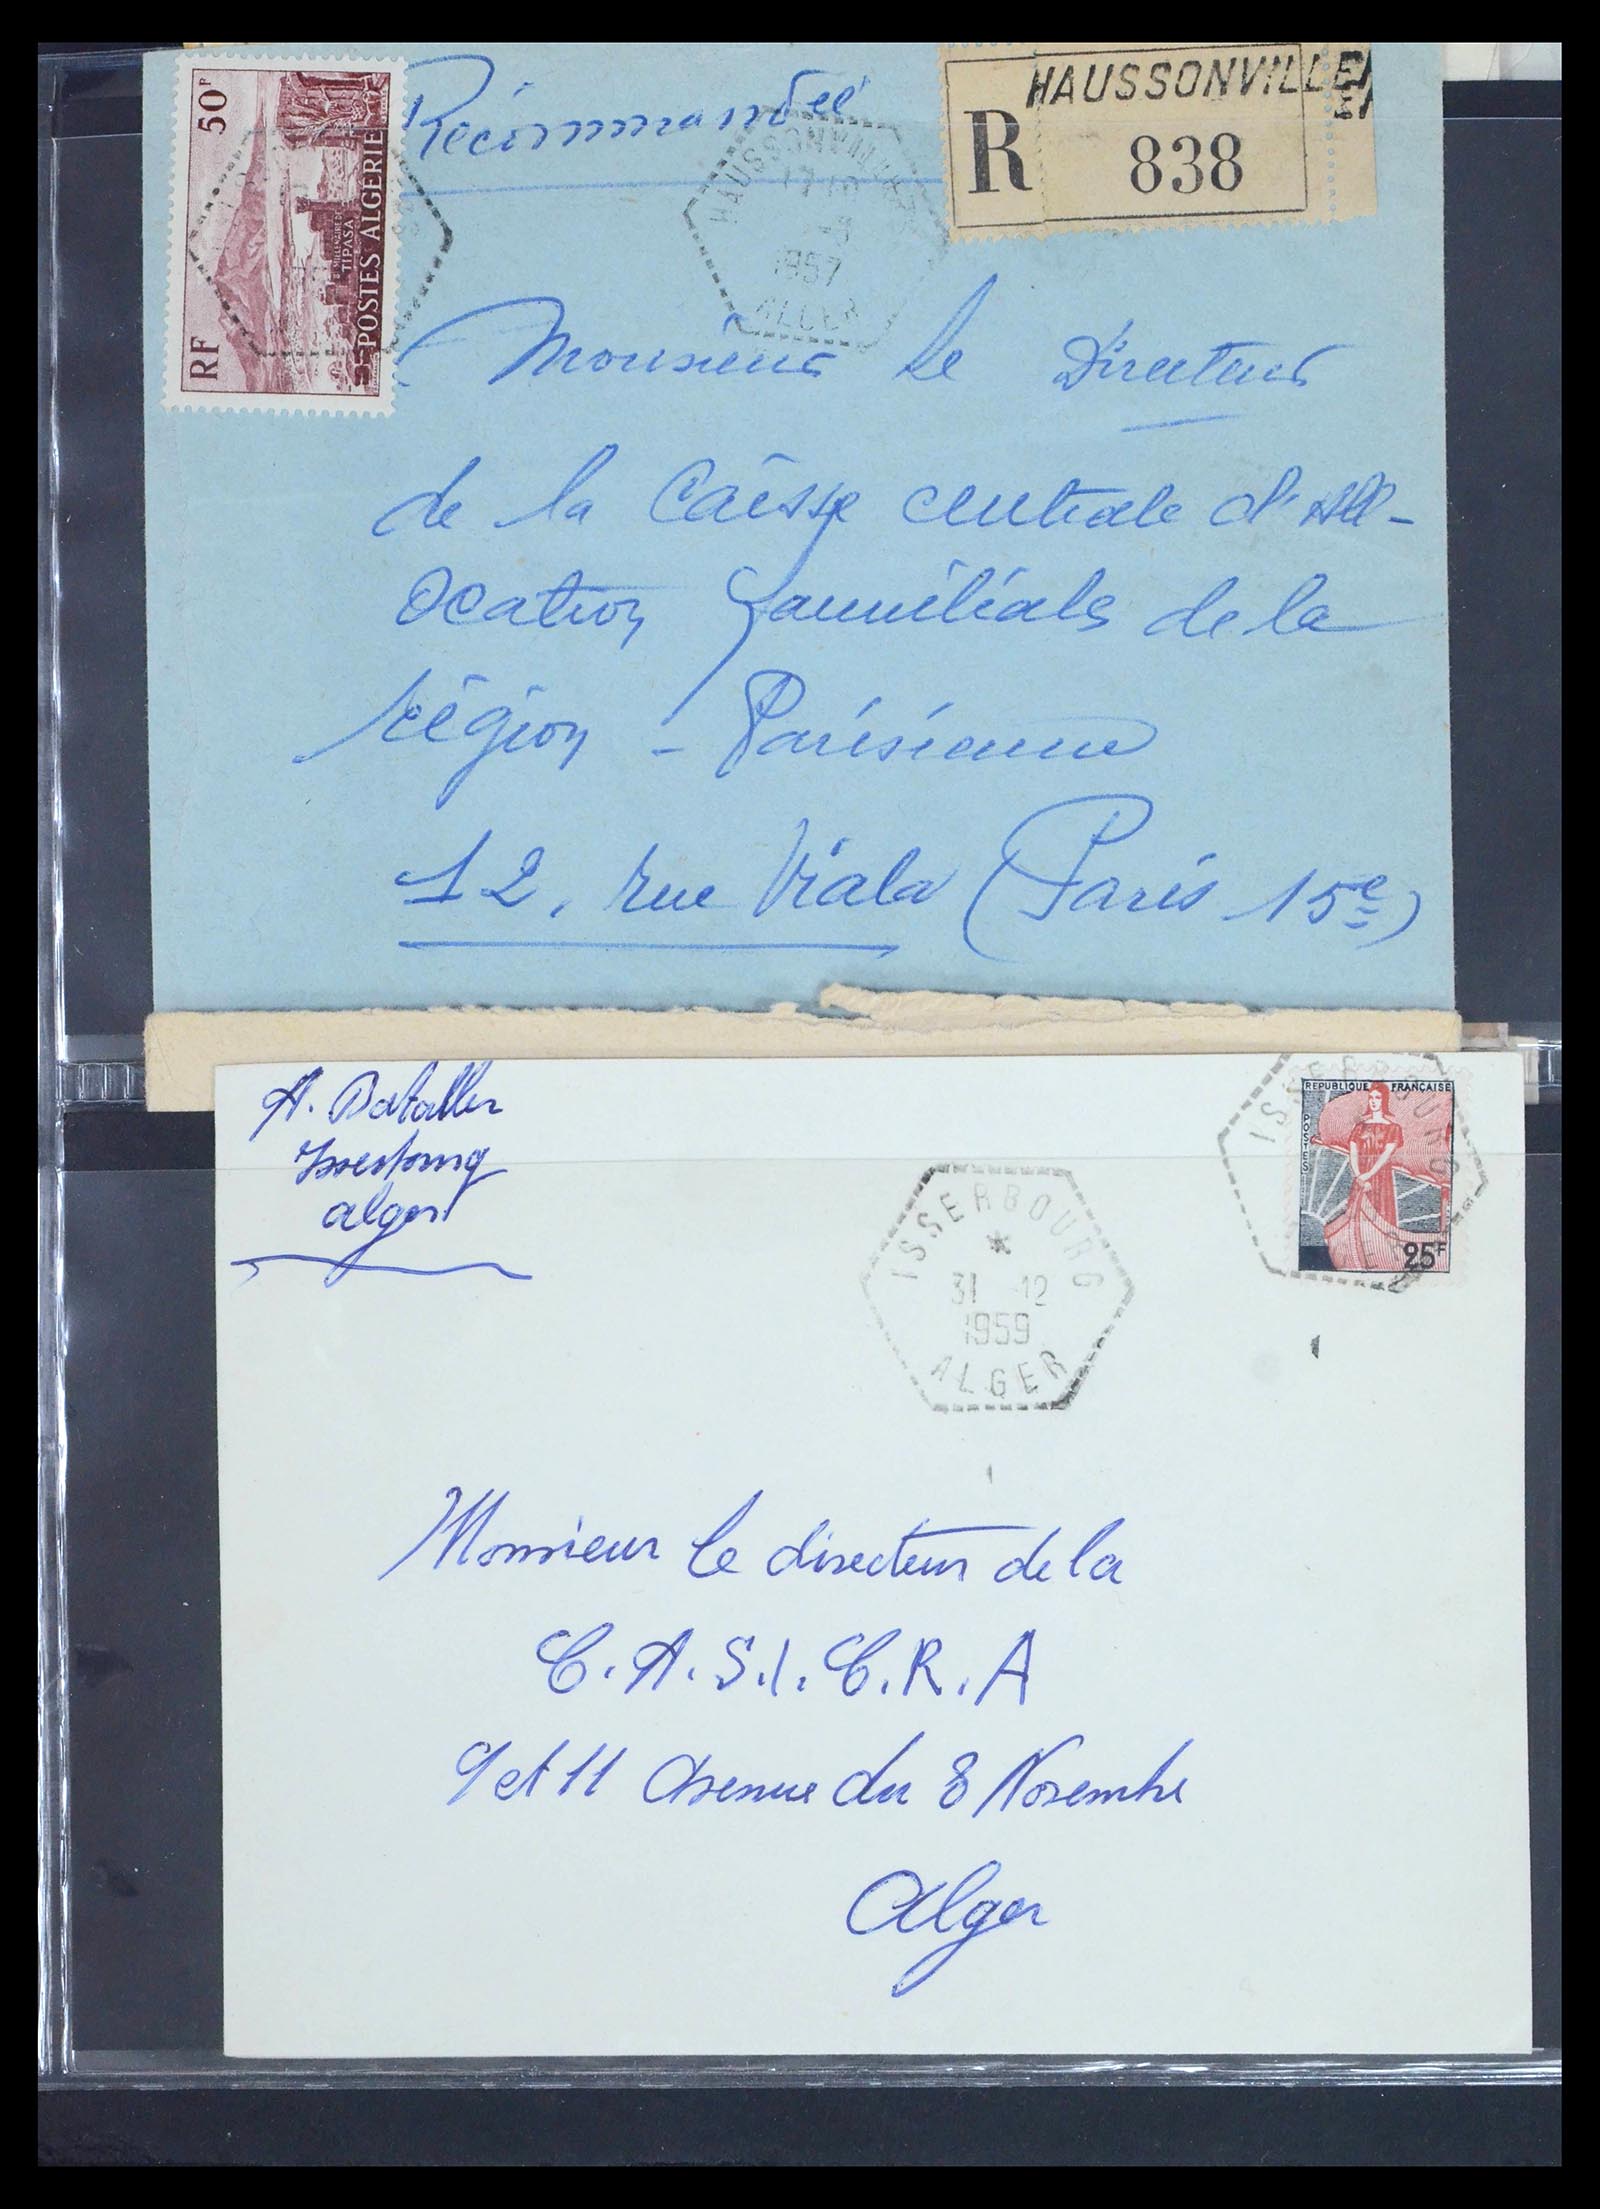 50F
RF
BIMILLENAIRE DE
TIPASA
POSTES ALGERIE
Récommandée
HAUSSONVILLER
R
838
HAUSSONVILLER
17 10
1957
ALGER
Monsieur le Directeur
de la Caisse centrale d'All-
ocation familiials de la
région - Parisienne
12, rue Viala (Paris 15e)
A. Bataller
Isserbourg
alger
ISSERBOURG
31 12
1959
ALGER
ISSERBOURG
REPUBLIQUE FRANÇAISE
POSTES
25F
Monsieur le directeur de la
C.A.S.I.C.R.A
9 et 11 Avenue du 8 Novembre
Alger